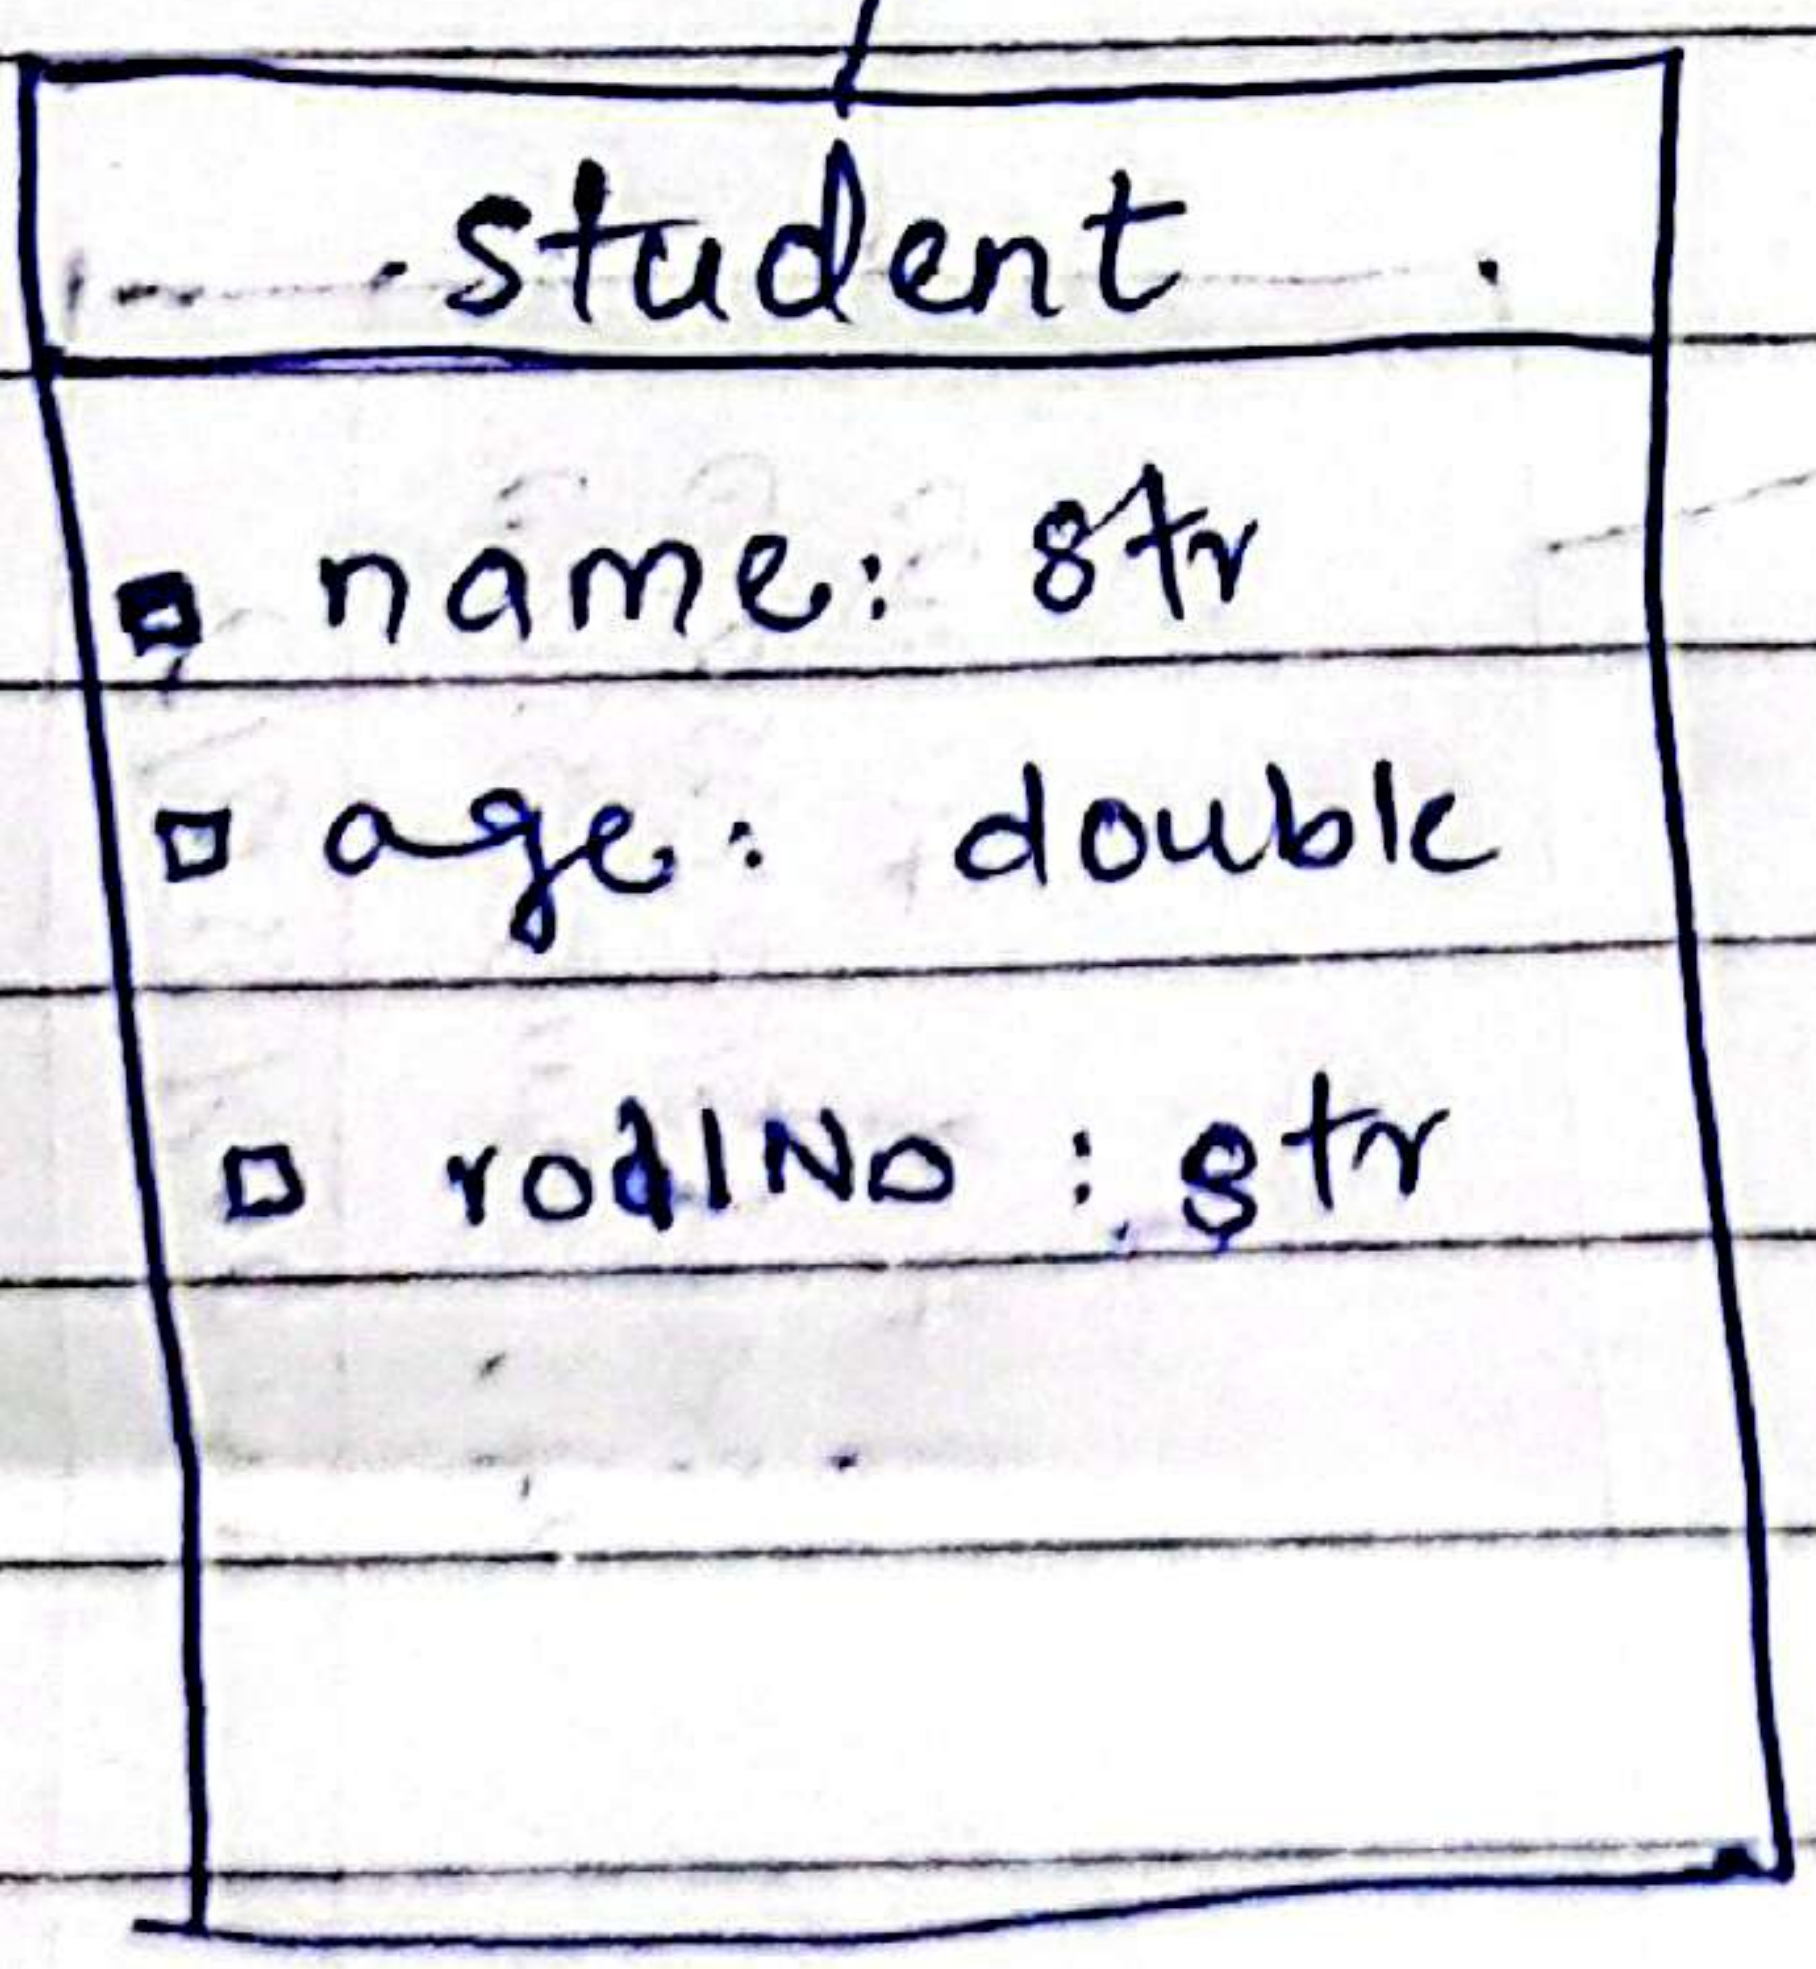 student
name: str
age: double
rollNo : str